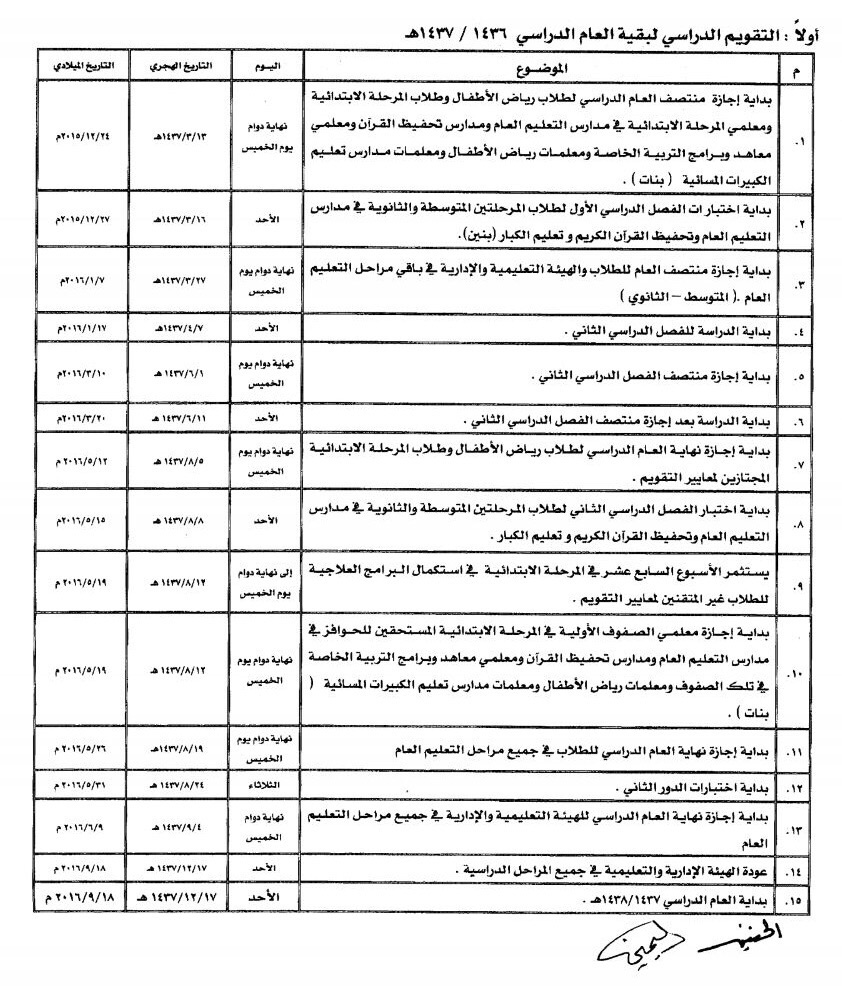 أولاً : التقويم الدراسي لبقية العام الدراسي ١٤٣٦ / ١٤٣٧هـ
م الموضوع اليوم التاريخ الهجري التاريخ الميلادي
١. بداية إجازة منتصف العام الدراسي لطلاب رياض الأطفال وطلاب المرحلة الابتدائية
ومعلمي المرحلة الابتدائية في مدارس التعليم العام ومدارس تحفيظ القرآن ومعلمي
معاهد وبرامج التربية الخاصة ومعلمات رياض الأطفال ومعلمات مدارس تعليم
الكبيرات المسائية ( بنات ) .
نهاية دوام
يوم الخميس
١٤٣٧/٣/١٣هـ
٢٠١٥/١٢/٢٤م
٢. بداية اختبارات الفصل الدراسي الأول لطلاب المرحلتين المتوسطة والثانوية في مدارس
التعليم العام وتحفيظ القرآن الكريم و تعليم الكبار (بنين).
الأحد
١٤٣٧/٣/١٦هـ
٢٠١٥/١٢/٢٧م
٣. بداية إجازة منتصف العام للطلاب والهيئة التعليمية والإدارية في باقي مراحل التعليم
العام .( المتوسط – الثانوي )
نهاية دوام يوم
الخميس
١٤٣٧/٣/٢٧هـ
٢٠١٦/١/٧م
٤. بداية الدراسة للفصل الدراسي الثاني .
الأحد
١٤٣٧/٤/٧هـ
٢٠١٦/١/١٧م
٥. بداية إجازة منتصف الفصل الدراسي الثاني .
نهاية دوام يوم
الخميس
١٤٣٧/٦/١ هـ
٢٠١٦/٣/١٠م
٦. بداية الدراسة بعد إجازة منتصف الفصل الدراسي الثاني .
الأحد
١٤٣٧/٦/١١ هـ
٢٠١٦/٣/٢٠م
٧. بداية إجازة نهاية العام الدراسي لطلاب رياض الأطفال وطلاب المرحلة الابتدائية
المجتازين لمعايير التقويم .
نهاية دوام يوم
الخميس
١٤٣٧/٨/٥ هـ
٢٠١٦/٥/١٢ م
٨. بداية اختبار الفصل الدراسي الثاني لطلاب المرحلتين المتوسطة والثانوية في مدارس
التعليم العام وتحفيظ القرآن الكريم و تعليم الكبار .
الأحد
١٤٣٧/٨/٨ هـ
٢٠١٦/٥/١٥ م
٩. يستثمر الأسبوع السابع عشر في المرحلة الابتدائية في استكمال البرامج العلاجية
للطلاب غير المتقنين لمعايير التقويم .
إلى نهاية دوام
يوم الخميس
١٤٣٧/٨/١٢ هـ
٢٠١٦/٥/١٩ م
١٠. بداية إجازة معلمي الصفوف الأولية في المرحلة الابتدائية المستحقين للحوافز في
مدارس التعليم العام ومدارس تحفيظ القرآن ومعلمي معاهد وبرامج التربية الخاصة
في تلك الصفوف ومعلمات رياض الأطفال ومعلمات مدارس تعليم الكبيرات المسائية (
بنات ) .
نهاية دوام يوم
الخميس
١٤٣٧/٨/١٢ هـ
٢٠١٦/٥/١٩ م
١١. بداية إجازة نهاية العام الدراسي للطلاب في جميع مراحل التعليم العام
نهاية دوام يوم
الخميس
١٤٣٧/٨/١٩هـ
٢٠١٦/٥/٢٦ م
١٢. بداية اختبارات الدور الثاني .
الثلاثاء
١٤٣٧/٨/٢٤ هـ
٢٠١٦/٥/٣١ م
١٣. بداية إجازة نهاية العام الدراسي للهيئة التعليمية والإدارية في جميع مراحل التعليم
العام
نهاية دوام
الخميس
١٤٣٧/٩/٤ هـ
٢٠١٦/٦/٩ م
١٤. عودة الهيئة الإدارية والتعليمية في جميع المراحل الدراسية .
الأحد
١٤٣٧/١٢/١٧ هـ
٢٠١٦/٩/١٨ م
١٥. بداية العام الدراسي ١٤٣٨/١٤٣٧هـ .
الأحد
١٤٣٧/١٢/١٧ هـ
٢٠١٦/٩/١٨ م